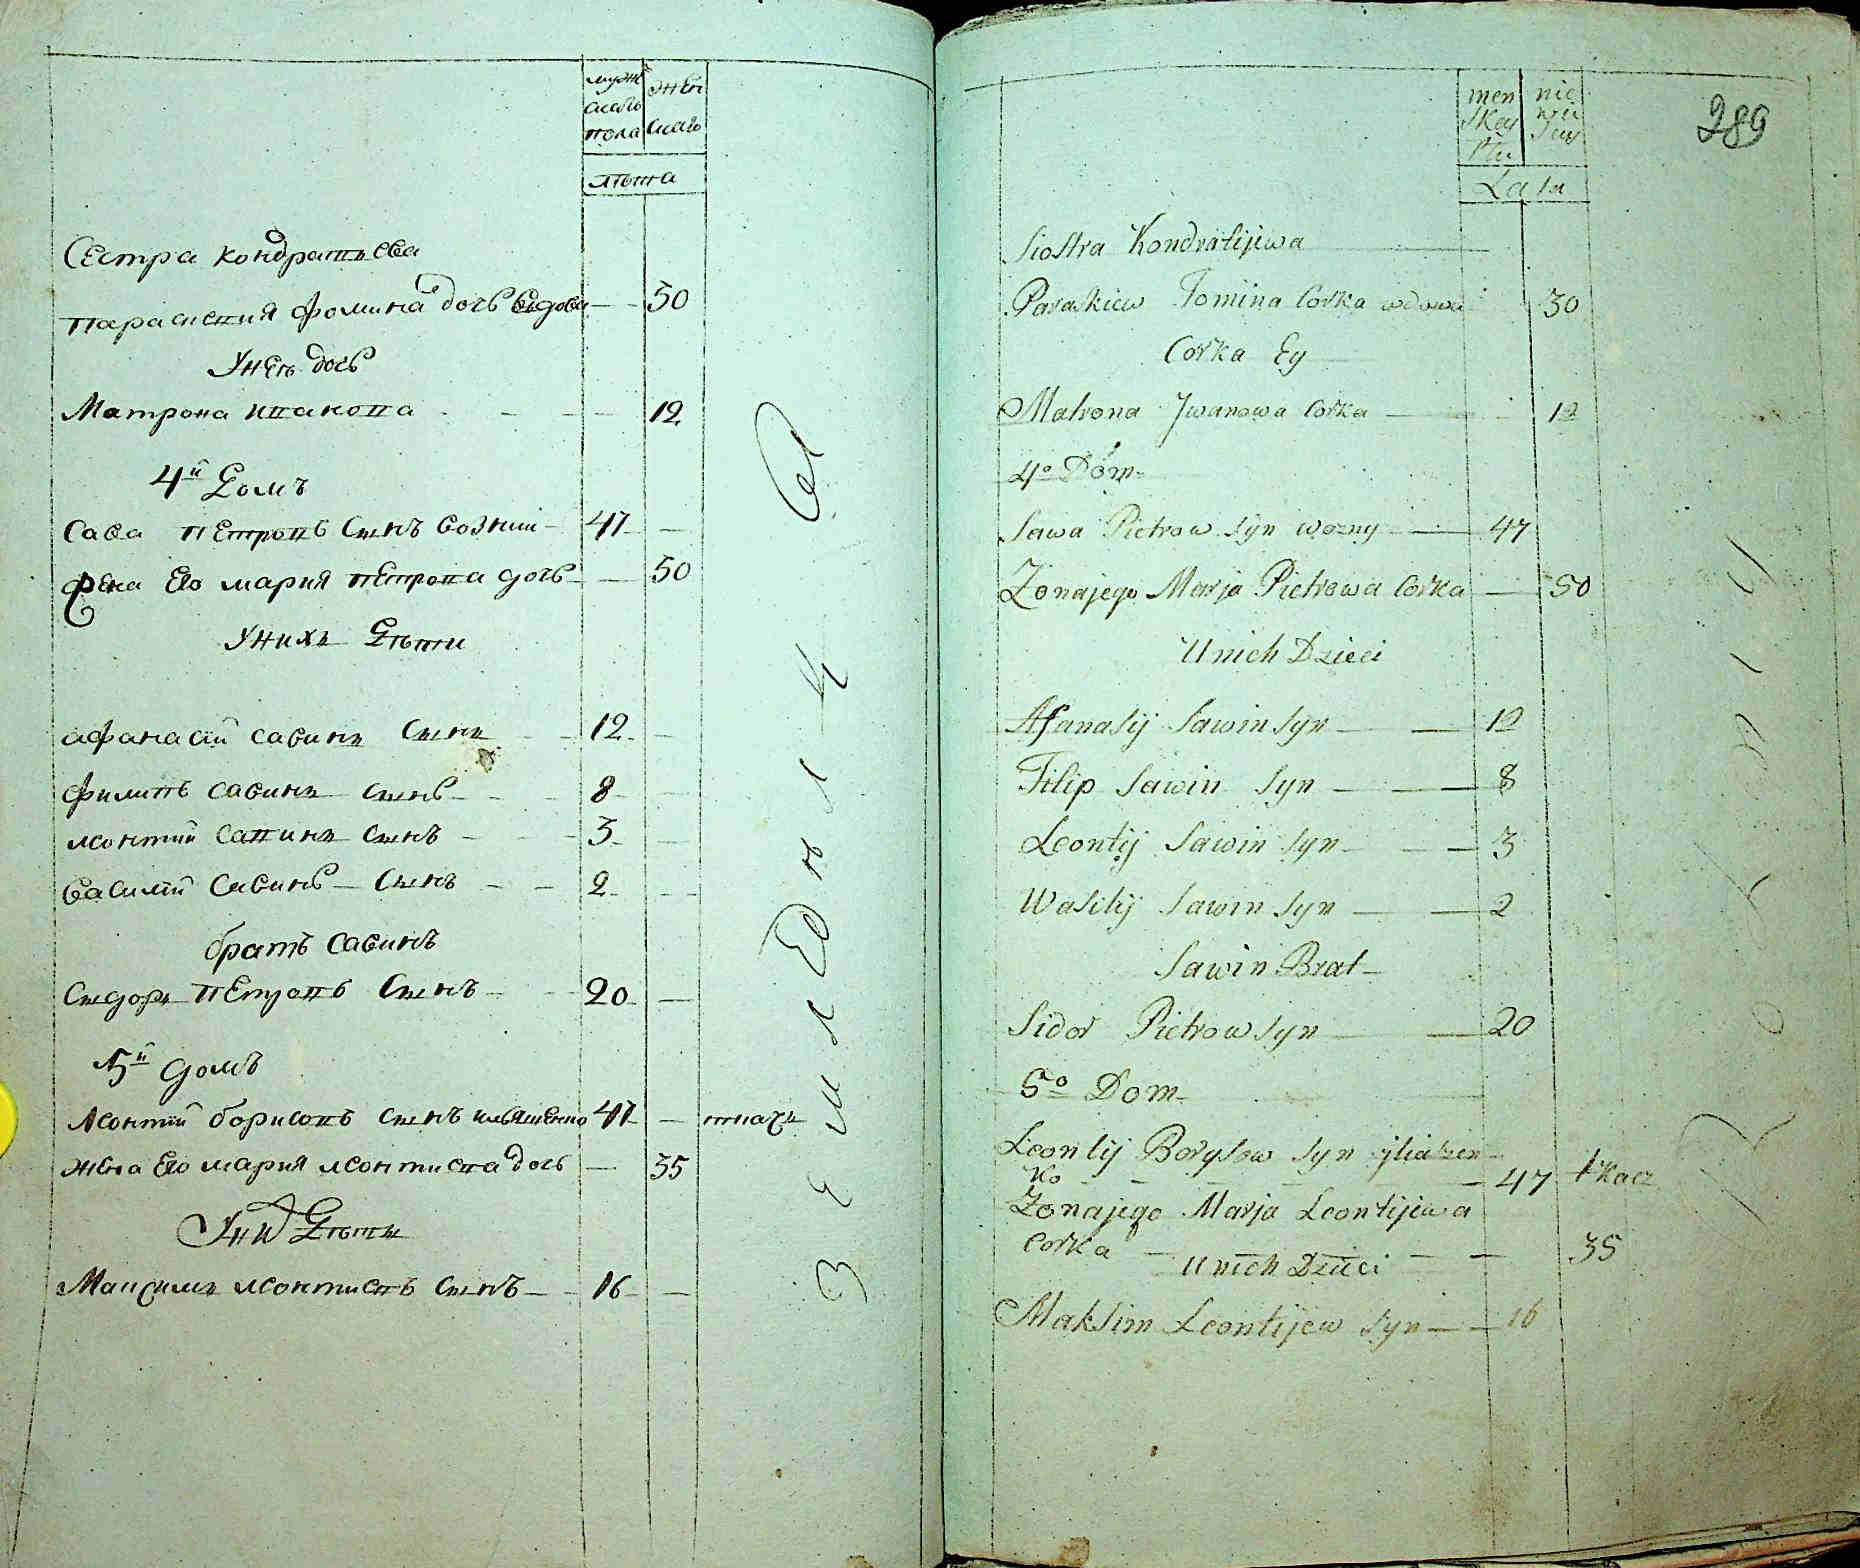 мужскаго пола
женскаго
лѣта
Сестра кондратьева
параскевия Фомина дочь вдова — — 50
У нея дочь
Матрона ивановa — — 12
4й Домъ
Сава петровъ сынъ возний — 47 —
Жена Его мария петрова дочь — — 50
У нихъ Дѣти
афанасий савинъ сынъ — 12 —
Филипъ савинъ сынъ — 8 —
леонтий савинъ сынъ — 3 —
василий савинъ — сынъ — 2 —
братъ савинъ
Сыдоръ петровъ сынъ — 20 —
5й домъ
леонтий борисовъ сынъ ильяшенко 47 — ткачъ
жена Его мария леонтиева дочь — 35
У них Дѣти
Максимъ леонтиевъ сынъ — 16 —
289
menskey płci
nie
Lata
Siostra Kondratijewa
Paraskiew Fomina Corka wdowa 30
Corka Ey
Matrona Jwanowa Corka — 12
4o Dom
Sawa Pietrow syn wozny — 47
Zona jego Marja Pietrowa Corka — 50
U nich Dzieci
Afanasij Sawin syn — 12
Filip Sawin syn — 8
Leontij Sawin syn — 3
Wasilij Sawin syn — 2
Sawin Brat
Sidor Pietrow syn — 20
5o Dom
Leontij Borysow syn jliaszen
ko — 47 tkacz
Zona jego Marja Leontijewa
Corka — 35
U nich Dzieci
Maksim Leontijew syn — 16